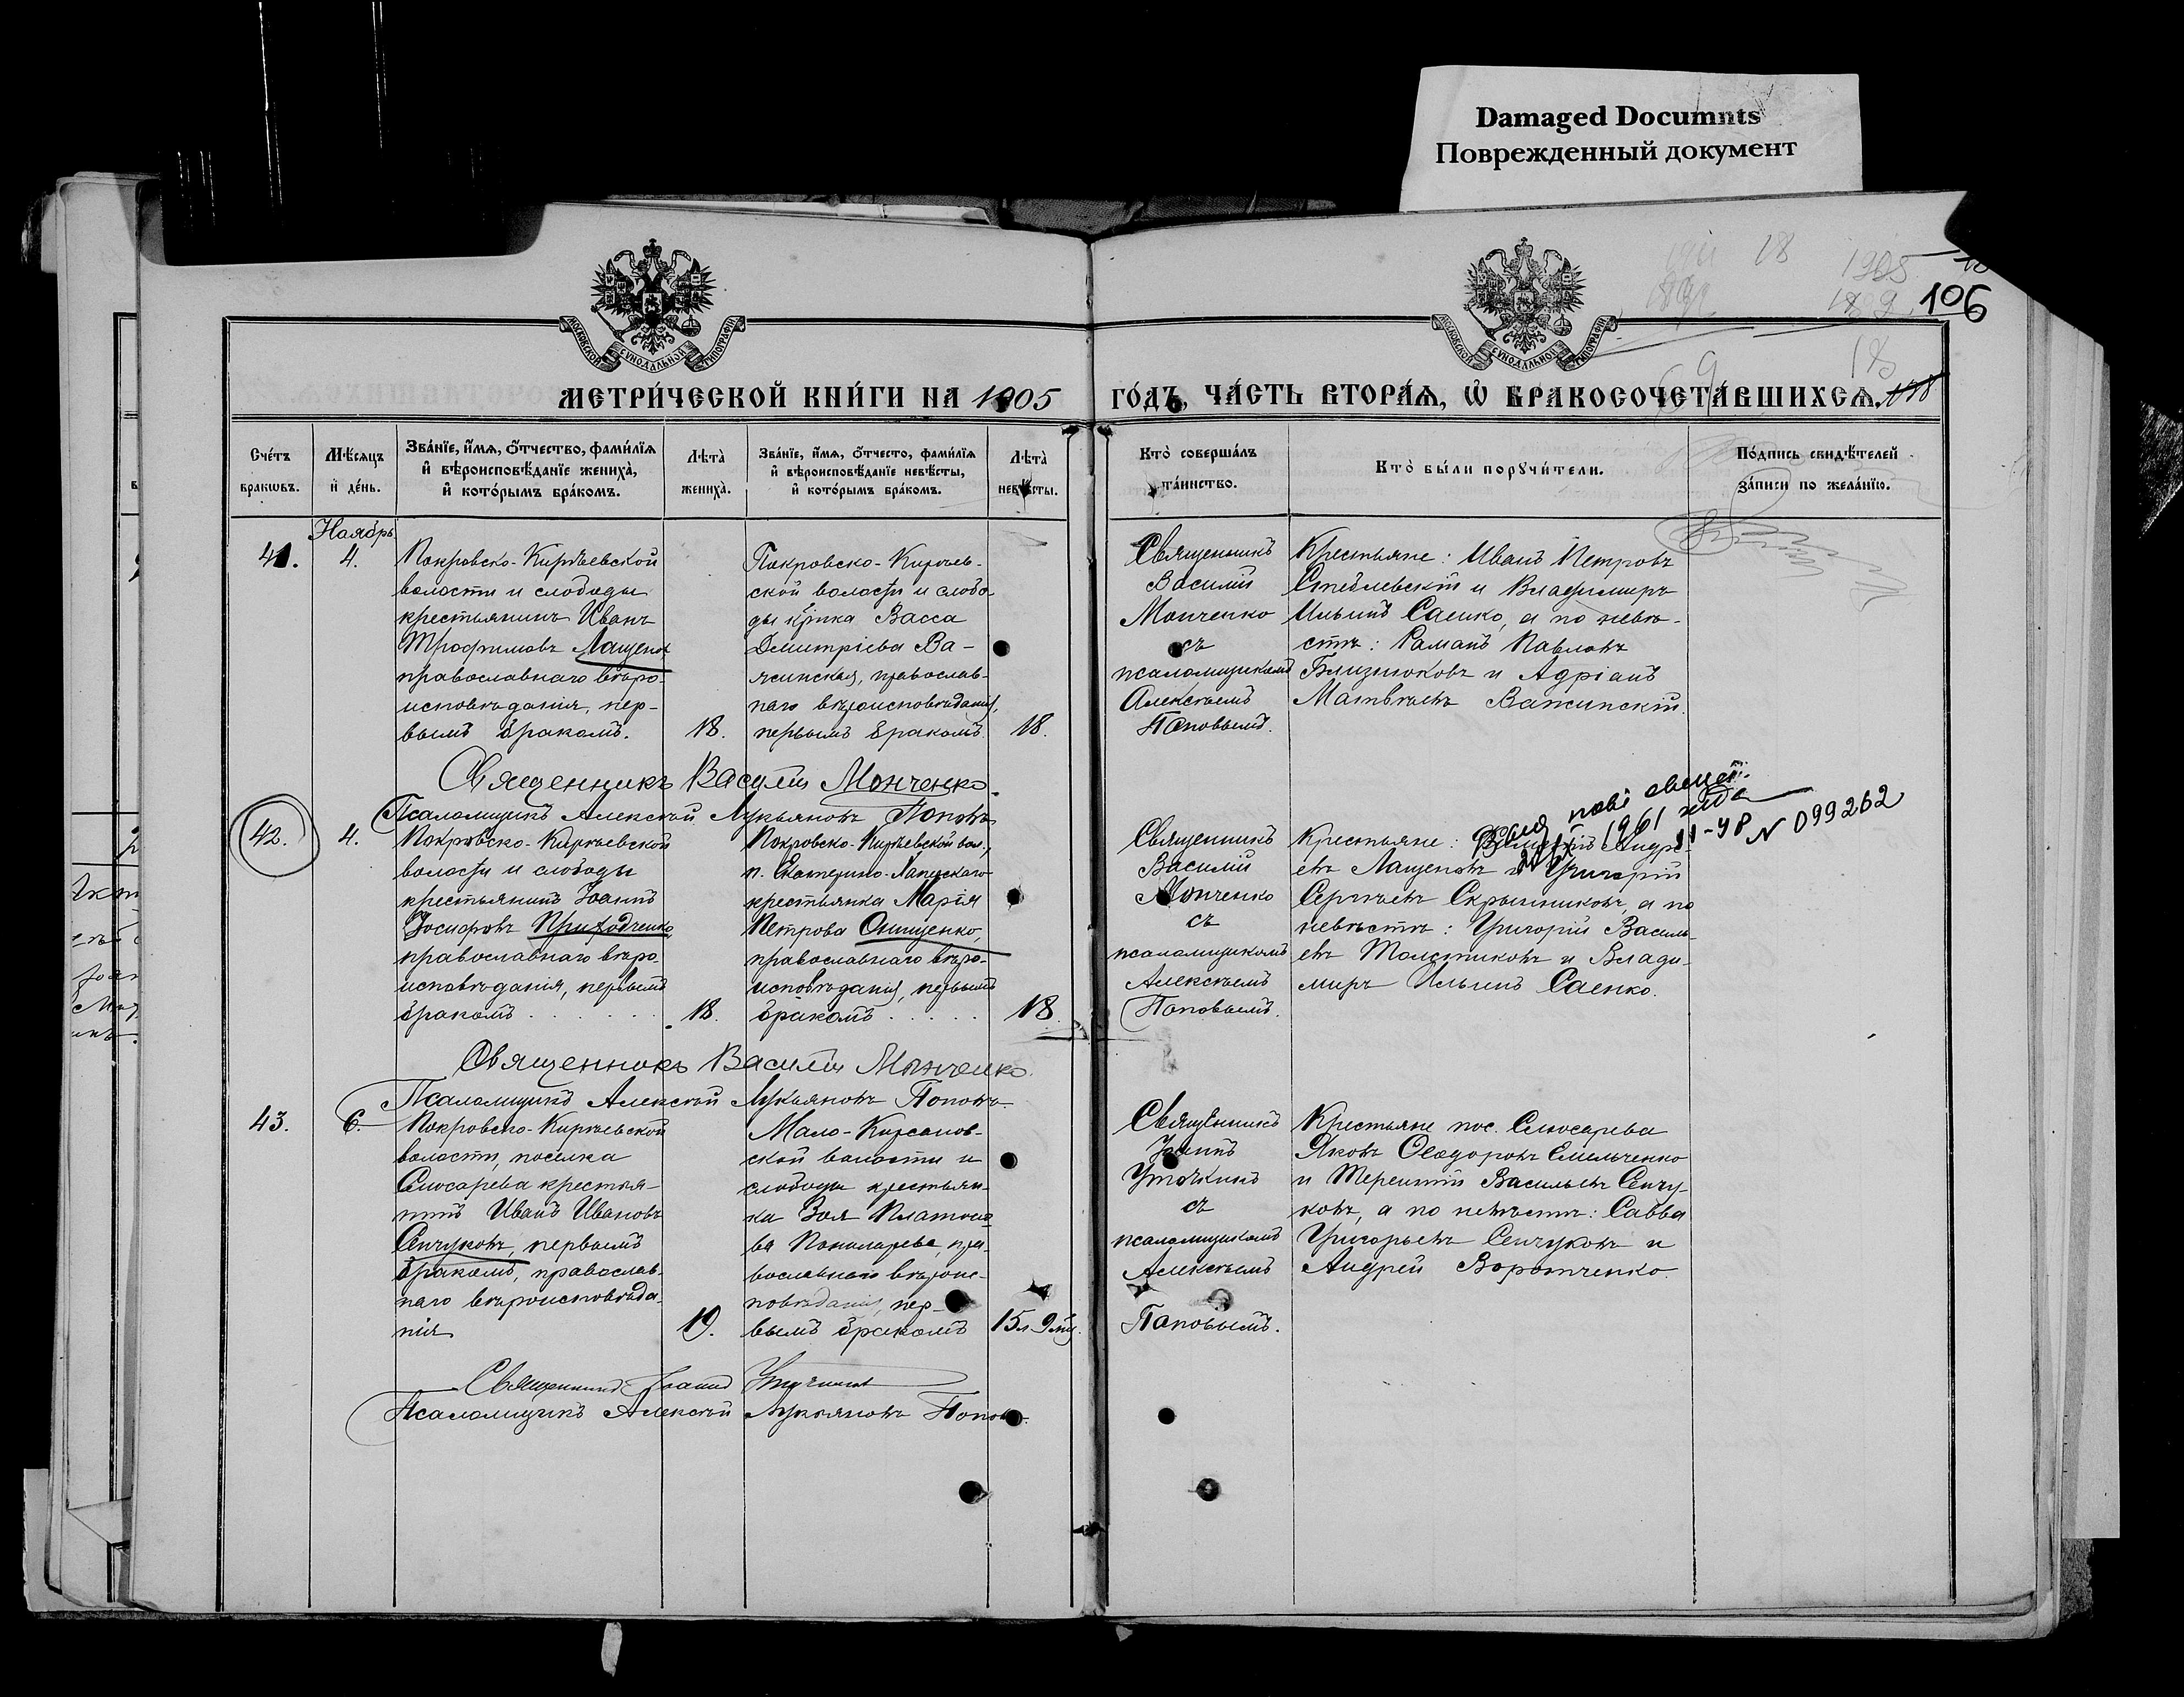 Damaged Documnts
Поврежденный документ
106
МЕТРИ́ЧЕСКОЙ КНИ́ГИ НА 1905
ГО́ДЪ, ЧА́СТЬ ВТОРА́Я, Ѡ БРАКОСОЧЕТА́ВШИХСЯ.
Сче́тъ браковъ.
Мѣ́сяцъ и де́нь.
Зва́нїе, и́мя, о́тчество, фами́лїя
и вѣроисповѣ́данїе жениха̀,
и кото́рымъ бра́комъ.
Лѣта̀ жениха̀.
Зва́нїе, и́мя, о́тчесто, фами́лїя
и вѣроисповѣ́данїе невѣ́сты,
и кото́рымъ бра́комъ.
Лѣта̀ невѣ́сты.
Кто̀ соверша́лъ
та́инство.
Кто̀ бы́ли поручи́тели.
По́дпись свидѣ́телей
за́писи по жела́нїю.
Ноябрь
41.
4.
Покровско-Кирѣевской
волости и слободы
крестьянинъ Иванъ
Трофимовъ Лащенов
православнаго вѣро-
исповѣданія, пер-
вымъ бракомъ.
18.
Покровско-Кирѣев-
ской волости и слобо-
ды кр̃нка Васса
Димитріева Ва-
жинская, православ-
наго вѣроисповѣданія,
первымъ бракомъ.
18.
Священникъ
Василій
Монченко
съ
псаломщикомъ
Алексѣемъ
Поповымъ.
Крестьяне: Иванъ Петровъ
Стеблевскій и Владимиръ
Ильинъ Саенко, а по невѣ-
стѣ: Романъ Павловъ
Близнюковъ и Адріанъ
Матвѣевъ Важинскій.
Священникъ Василій Монченко.
Псаломщикъ Алексѣй Лукьяновъ Поповъ
42.
4.
Покровско-Кирѣевской
волости и слободы
крестьянинъ Іоаннъ
Іосифовъ Приходченко
православнаго вѣро-
исповѣданія, первымъ
бракомъ
18.
Покровско-Кирѣевской вол.,
п. Екатерино-Хапрскаго
крестьянка Марія
Петрова Онищенко,
православнаго вѣро-
исповѣданія, первымъ
бракомъ
18.
Священникъ
Василій
Монченко
съ
псаломщикомъ
Алексѣемъ
Поповымъ.
1961 года
N 099262
Крестьяне: Андре-
евъ Лащеновъ и Григорій
Сергѣевъ Скрынниковъ, а по
невѣстѣ: Григорій Василь-
евъ Толстиковъ и Влади-
миръ Ильинъ Саенко.
Священникъ Василій Монченко.
Псаломщикъ Алексѣй Лукьяновъ Поповъ.
43.
6.
Покровско-Кирѣевской
волости, поселка
Слюсарева крестья-
нинъ Иванъ Ивановъ
Сенчуковъ, первымъ
бракомъ, православ-
наго вѣроисповѣда-
нія
19.
Мало-Кирсанов-
ской волости и
слободы крестьян-
ка Зоя Платоно-
ва Пономарева, пра-
вославнаго вѣроис-
повѣданія, пер-
вымъ бракомъ
15 л. 9 мц.
Священникъ
Іоаннъ
Уточкинъ
съ
псаломщикомъ
Алексѣемъ
Поповымъ.
Крестьяне пос. Слюсарева
Яковъ Ѳеодоровъ Емельченко
и Терентій Васильевъ Сенчу-
ковъ, а по невѣстѣ: Савва
Григорьевъ Сенчуковъ и
Андрей Воротченко.
Священникъ Іоаннъ Уточкинъ
Псаломщикъ Алексѣй Лукьяновъ Поповъ.